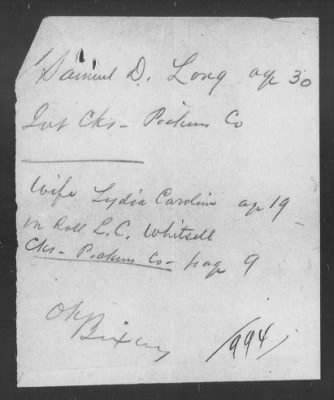 Samuel D. Long age 30
Int Cks - Pickens Co
Wife Lydia Carolin age 19
on Roll L.C. Whitsell
Cks - Pickens Co - page 9
OK
Bixby
1994